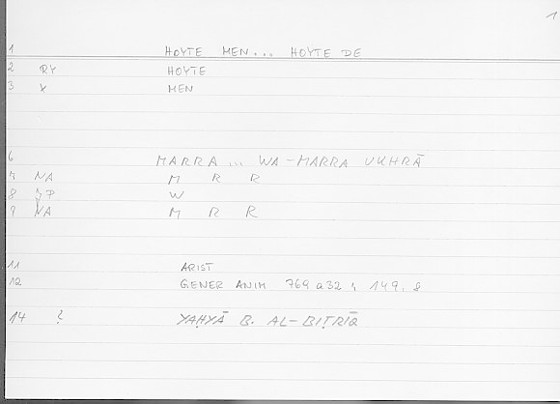 1
1 HOYTE MEN... HOYTE DE
2 RY HOYTE
3 X MEN
6 MARRA ... WA-MARRA UKHRĀ
7 NA M R R
8 JP W
9 NA M R R
11 ARIST
12 GENER ANIM 769 a32 ; 149. 8
14 ? YAḤYĀ B. AL-BIṬRĪQ